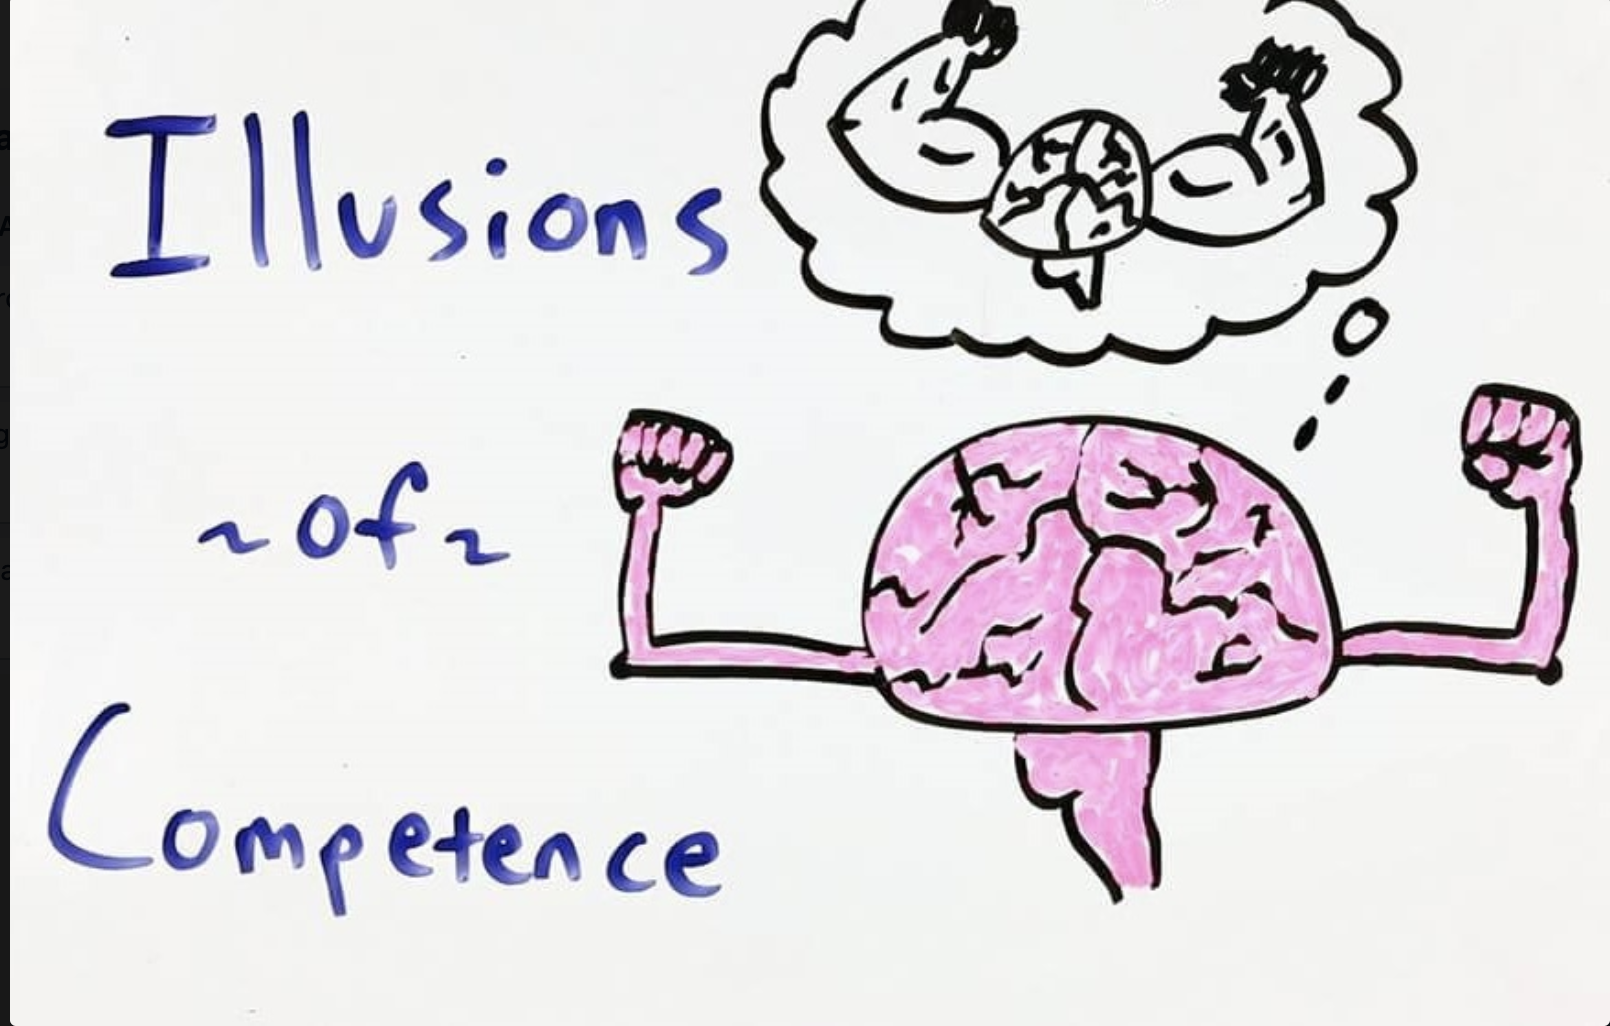 Illusions
~of~
Competence